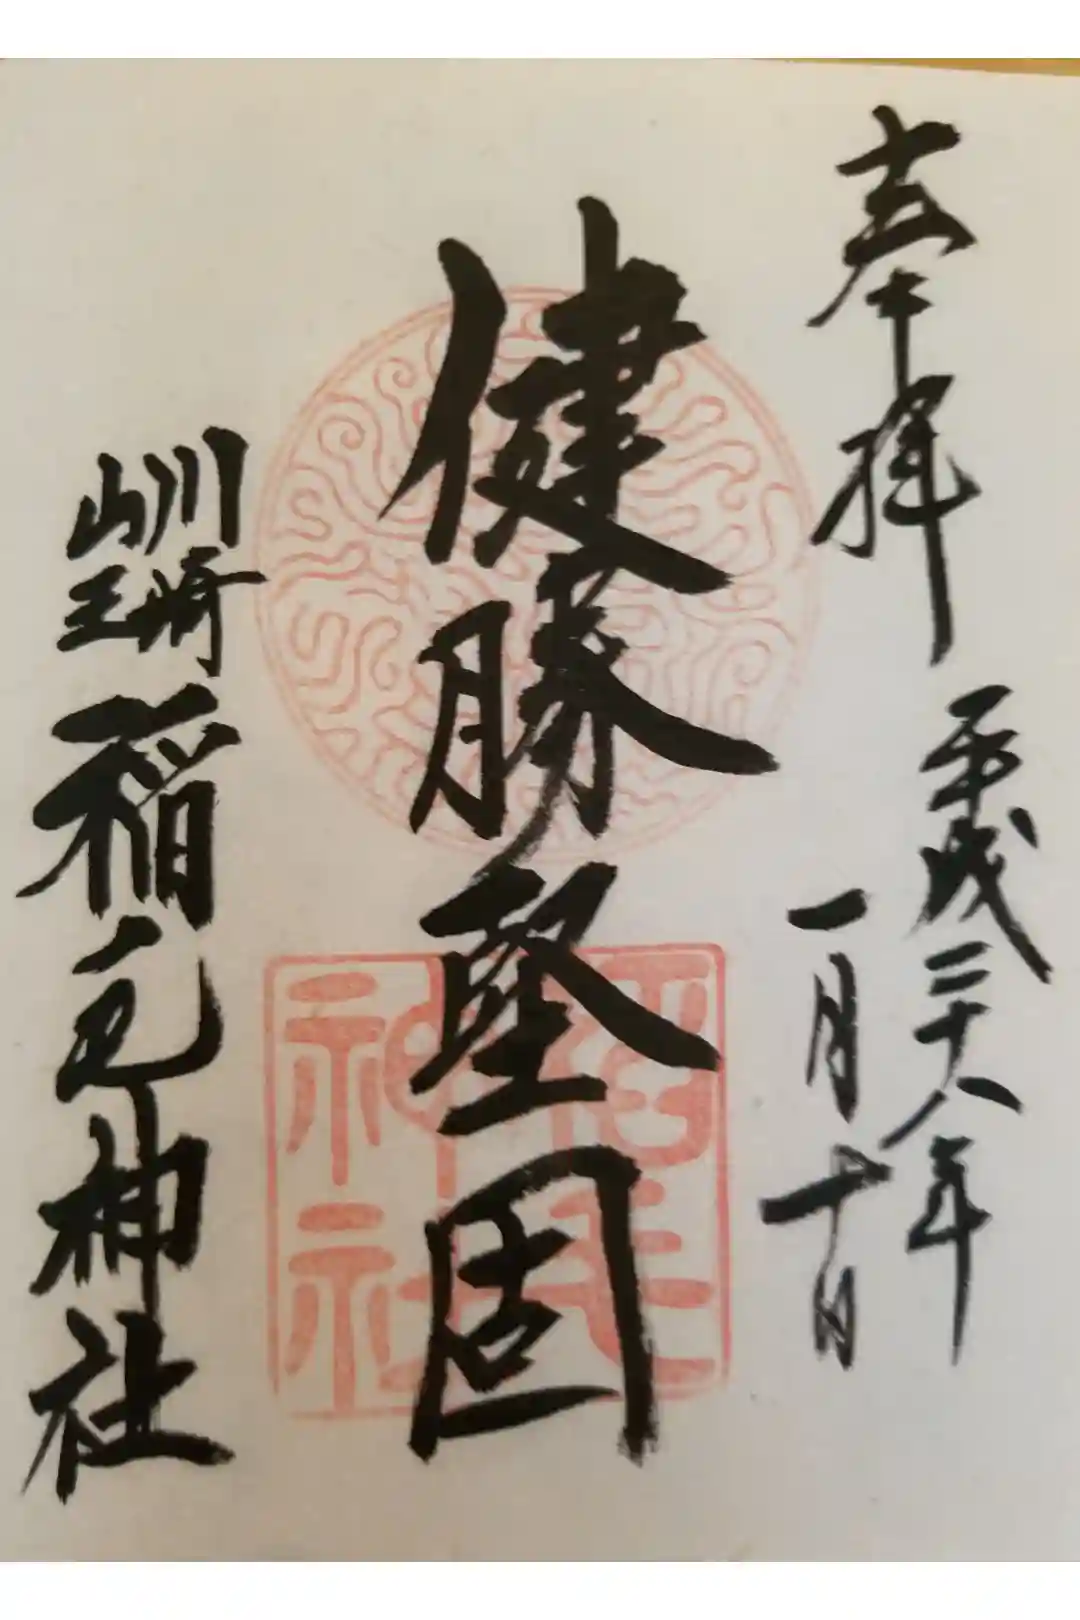 奉拝
平成二十八年
一月十日
健勝堅固
川崎
山王
稲毛神社
稲毛
神社